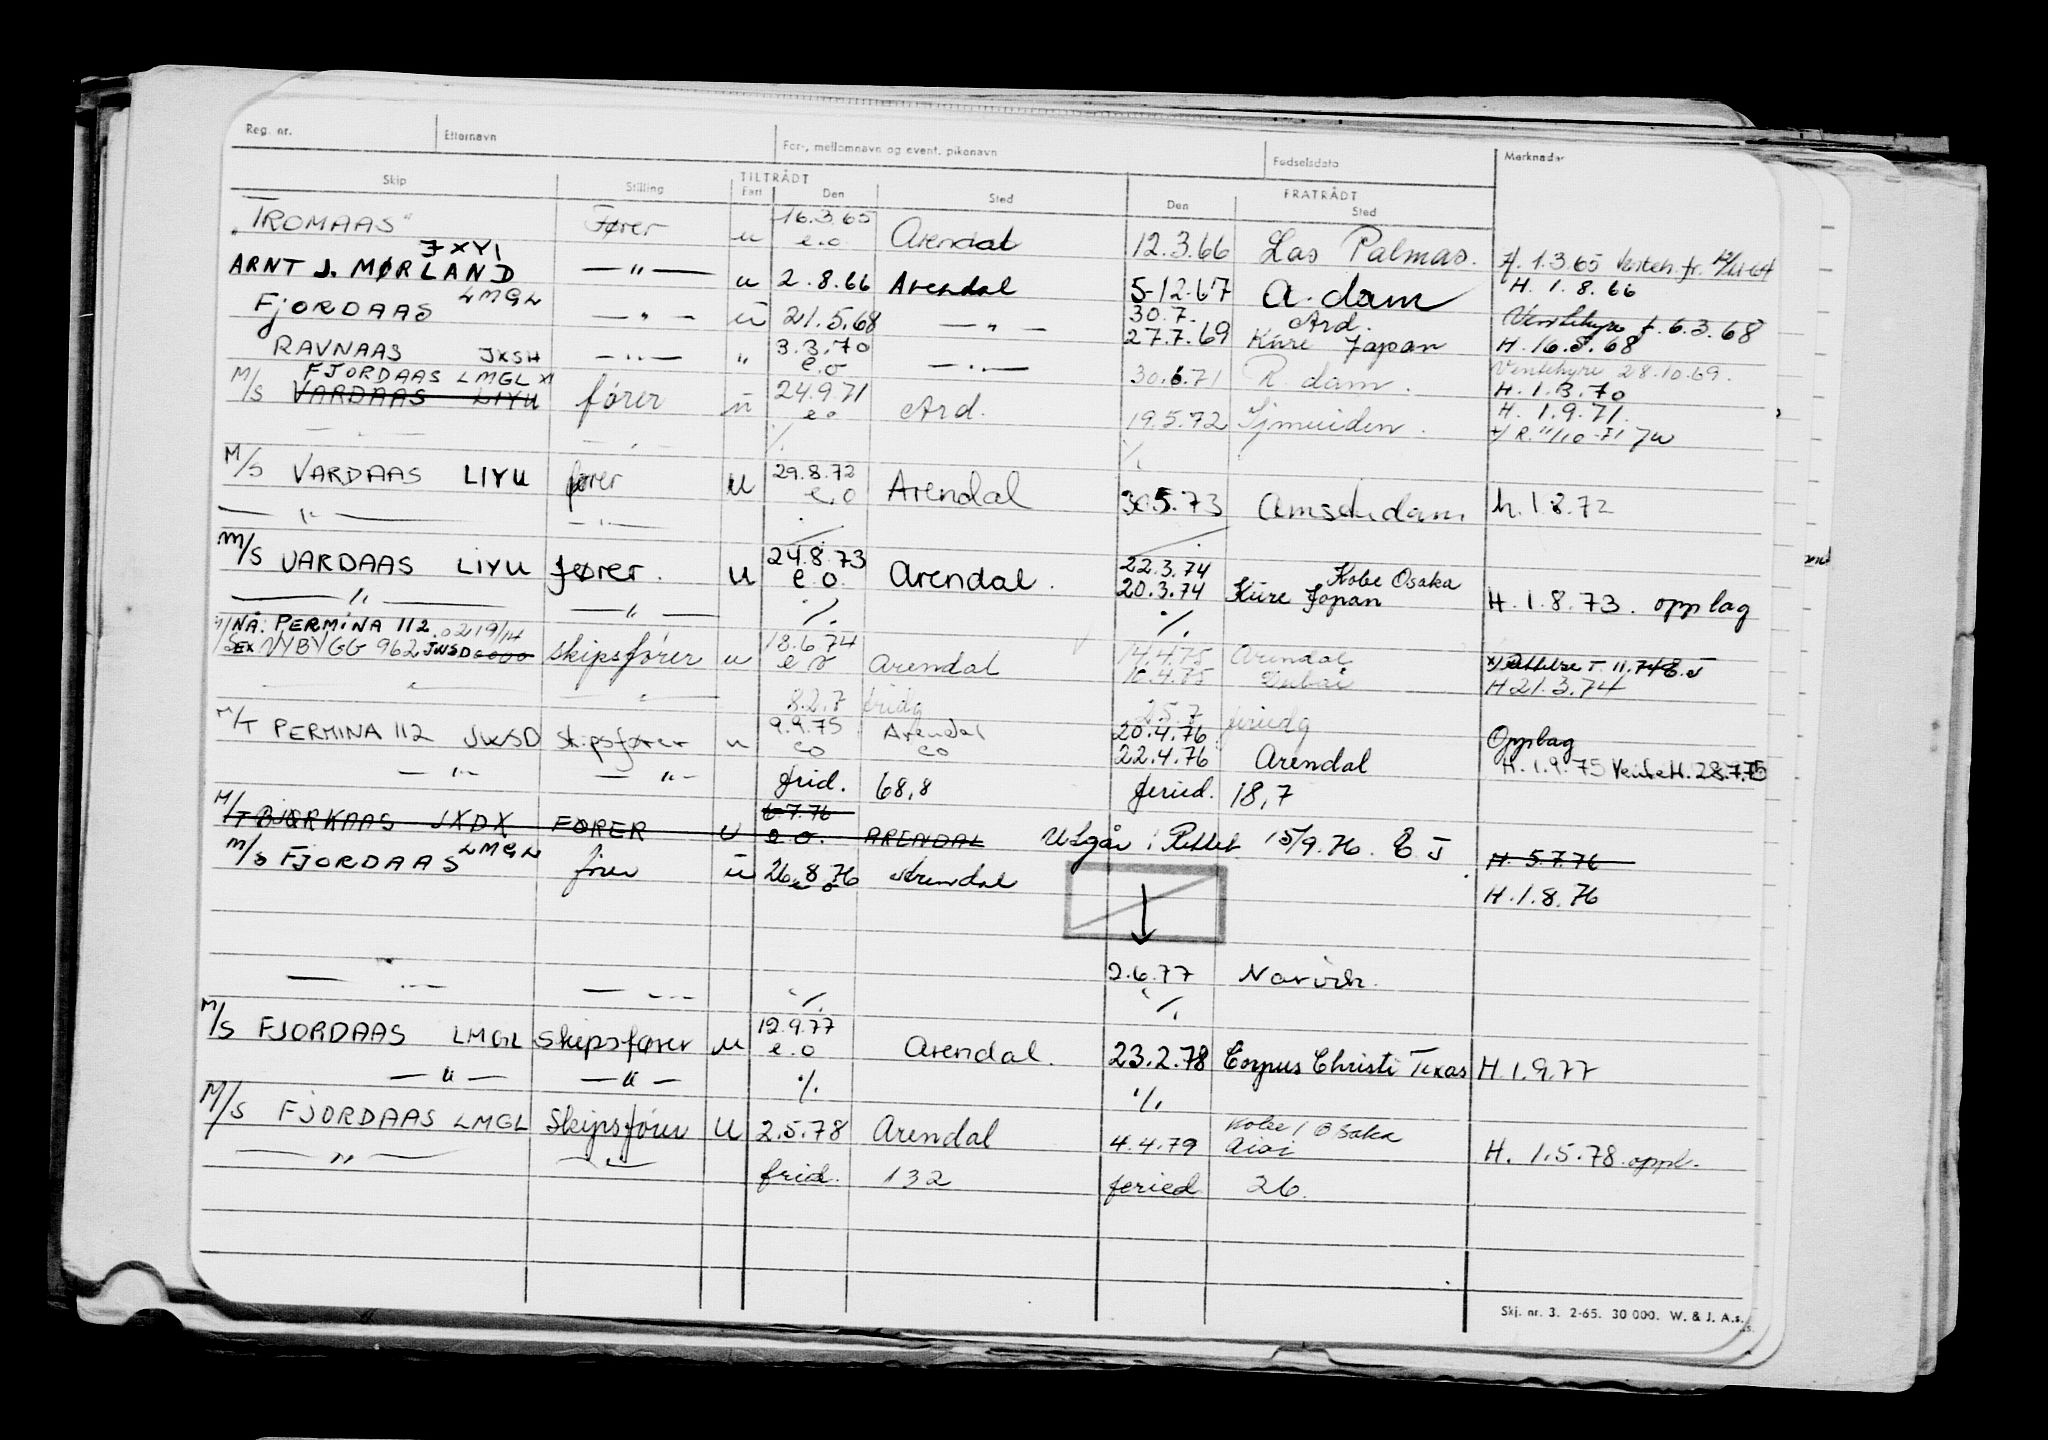 Reg. nr. Etternavn For-, mellomnavn og event. pikenavn Fødselsdato Merknader
Skip Stilling TILTRÅDT Fart Den Sted FRATRÅDT Den Sted
"TROMAAS" Fører u 16.3.65 e.o Arendal 12.3.66 Las Palmas. H. 1.3.65
JXYI
ARNT J. MØRLAND —"— u 2.8.66 Arendal 5-12.67 A.dam H. 1.8.66
LMGL
FJORDAAS —"— u 21.5.68 —"— 30.7. Ard. 27.7.69 Kure Japan Ventehyre f. 6.3.68 H. 16.5.68
RAVNAAS JXSH —"— " 3.3.70 e.o —"— 30.6.71 R.dam. Ventehyre 28.10.69. H. 1.3.70
FJORDAAS LMGL x)
M/S VARDAAS LIYU fører u 24.9.71 e.o Ard. 19.5.72 Ijmuiden. H. 1.9.71.
—"— —"— ./. ./.
M/S VARDAAS LIYU fører u 29.8.72 e.o Arendal 30.5.73 Amsterdam h. 1.8.72
—"— —"— ./.
M/S VARDAAS LIYU fører. u 24.8.73 e.o. Arendal. 22.3.74 Kobe Osaka
20.3.74 Kure Japan H. 1.8.73. opplag
—"— —"— ./. ./.
NÅ: PERMINA 112.
M/S EX NYBYGG 962 JWSD skipsfører u 18.6.74 e.o Arendal 14.4.75 Arendal
16.4.75 Dubai H 21.3.74
8.2.7 fridg 25.7 feriedg
M/T PERMINA 112 JWSD skipsfører u 9.9.75 eo Arendal eo 20.4.76 Opplag
22.4.76 Arendal H. 1.9.75 Vente H. 28.7.75
—"— —"— frid. 68,8 feried. 18,7
M/T BJØRKAAS JXDX FØRER U 6.7.76 e.o. ARENDAL Utgår: Rettet 15/9.76. E J H. 5.7.76
M/S FJORDAAS LMGL fører u 26.8.76 e o Arendal H. 1.8.76
↓
2.6.77 Narvik.
—"— —"— ./. ./.
M/S FJORDAAS LMGL Skipsfører u 12.9.77 e.o Arendal. 23.2.78 Corpus Christi Texas H. 1.9.77
—"— —"— ./. ./.
M/S FJORDAAS LMGL Skipsfører U 2.5.78 Arendal 4.4.79 Kobe / Osaka Aioi H. 1.5.78 oppl.
—"— —"— frid. 132 feried 26.
Skj. nr. 3. 2-65. 30 000. W. & J. A.s.